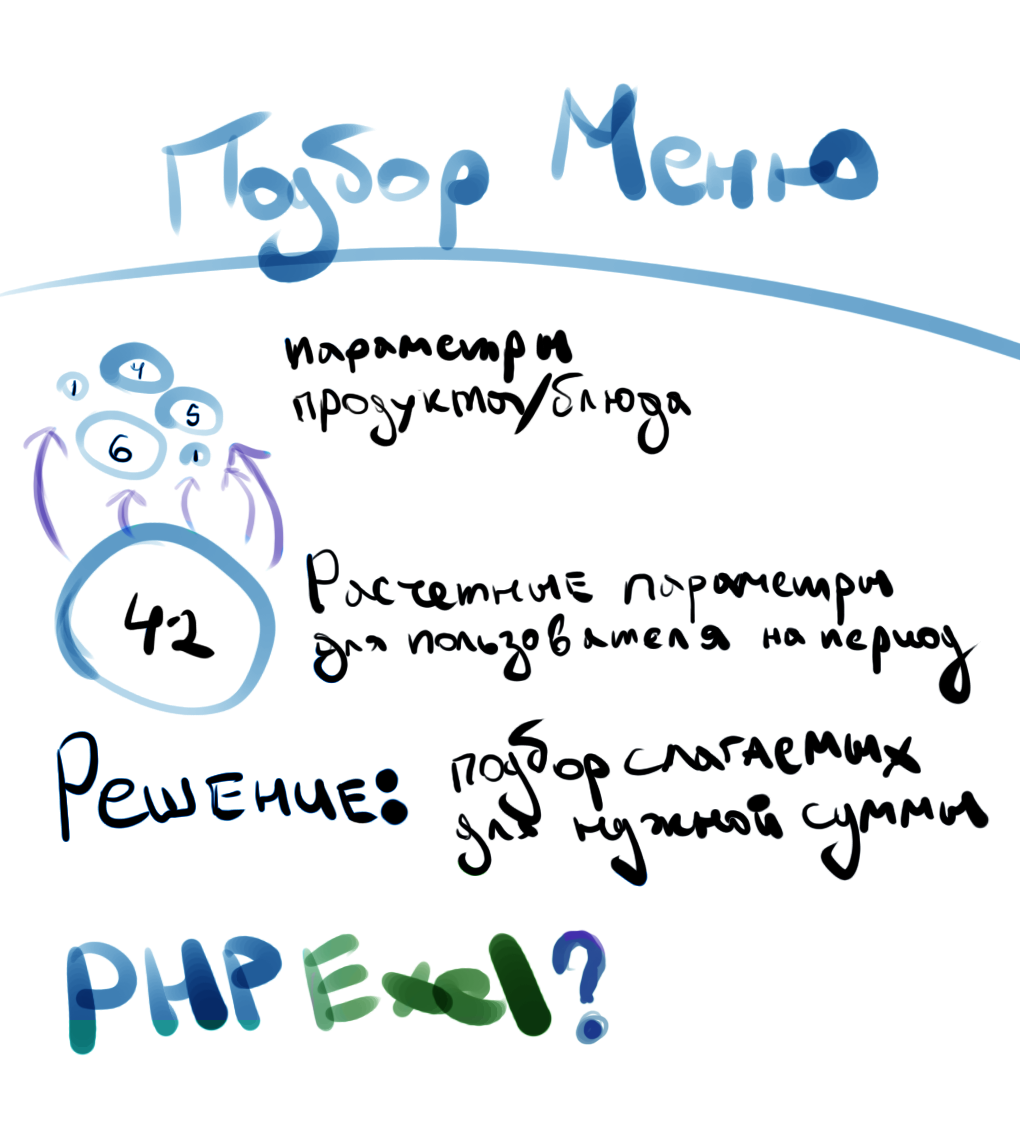 Подбор Меню
параметры
продуктов/блюда
1
4
5
6
1
42
Расчетные параметры
для пользователя на период
Решение:
подбор слагаемых
для нужной суммы
PHP Exel?